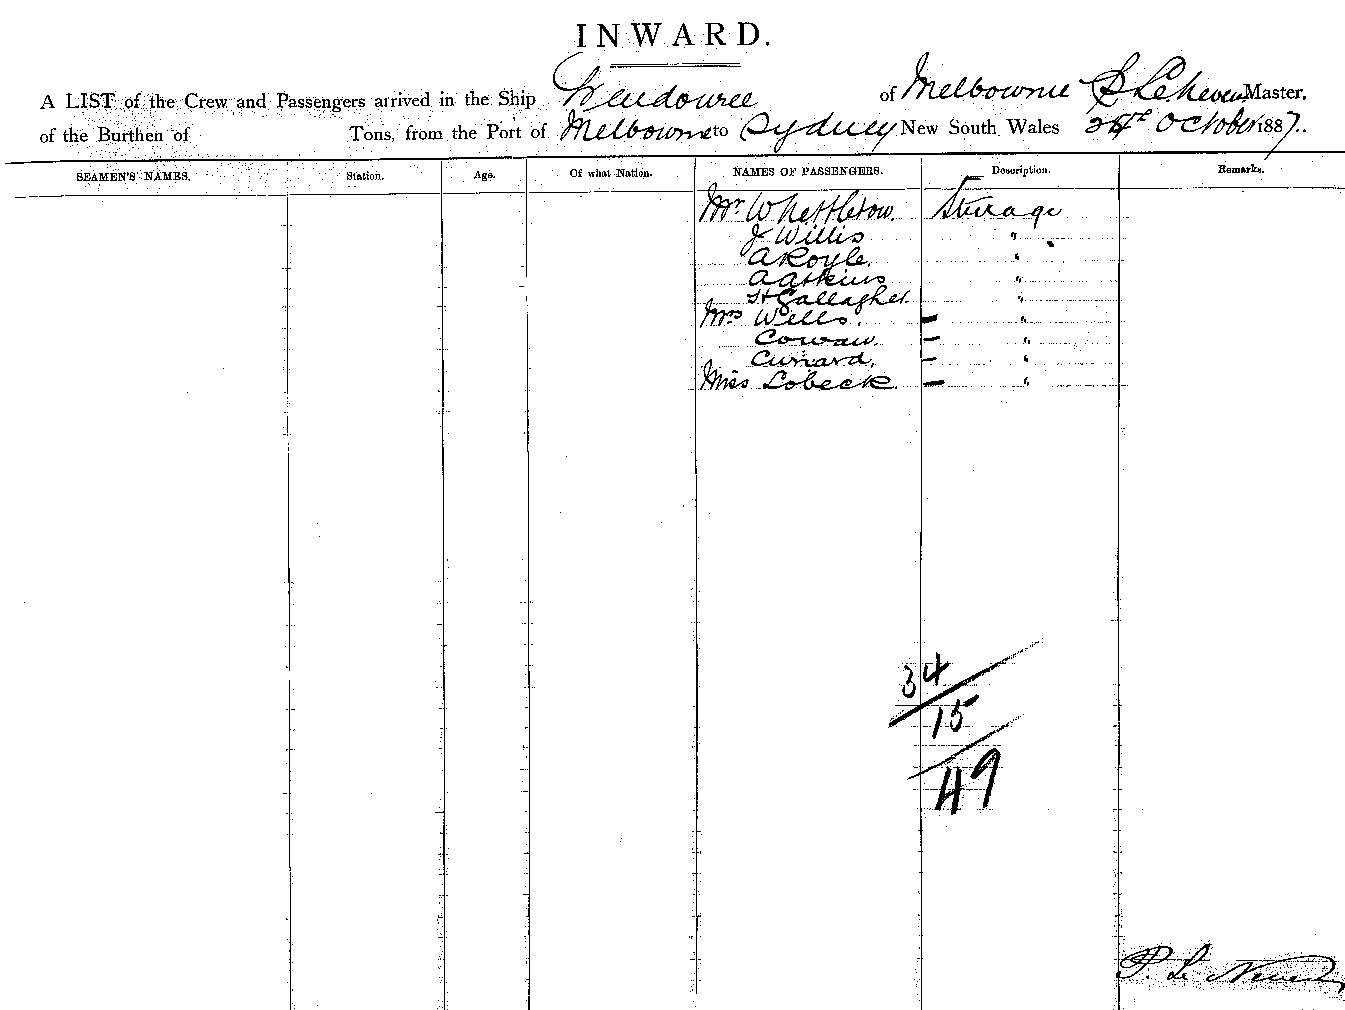 INWARD.
A LIST of the Crew and Passengers arrived in the Ship Wendouree of Melbourne Master,
of the Burthen of Tons, from the Port of Melbourne to Sydney New South Wales 24th October 1887.
SEAMEN'S NAMES. Station. Age. Of what Nation. NAMES OF PASSENGERS. Description. Remarks.
Mr W Nettleton. Steerage
J Willis "
A Royle. "
A Atkins "
H Gallagher "
Mrs Wells. — "
Cowan. — "
Cunard. — "
Miss Lobeck. — "
34
15
49
P. Le